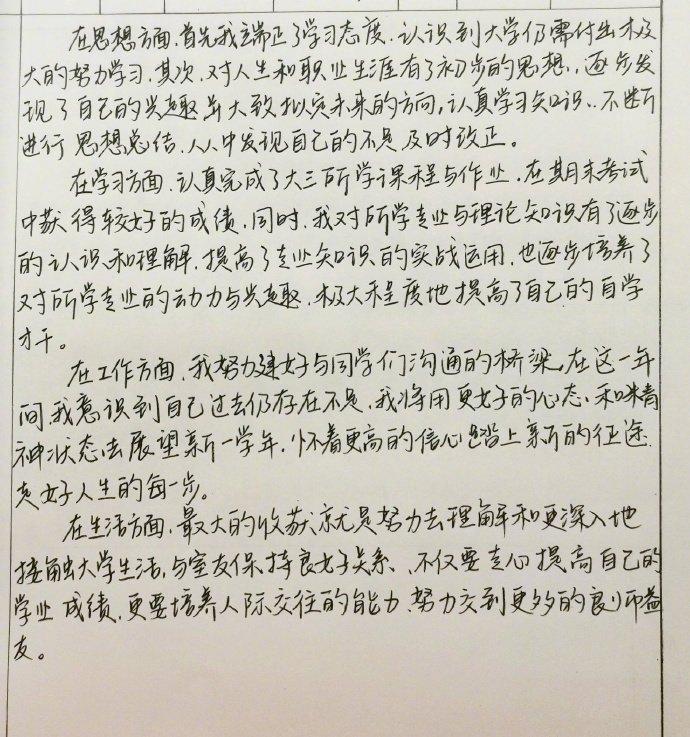 在思想方面,首先我端正了学习态度,认识到大学仍需付出极
大的努力学习,其次,对人生和职业生涯有了初步的思想,逐步发
现了自己的兴趣并大致拟定未来的方向,认真学习知识、不断
进行思想总结,从中发现自己的不足及时改正。
在学习方面,认真完成了大三所学课程与作业,在期末考试
中获得较好的成绩,同时,我对所学专业与理论知识有了逐步
的认识和理解,提高了专业知识的实战运用,也逐步培养了
对所学专业的动力与兴趣,极大程度地提高了自己的自学
才干。
在工作方面,我努力建好与同学们沟通的桥梁,在这一年
间,我意识到自己过去仍存在不足,我将用更好的心态、和精
神状态去展望新一学年,怀着更高的信心踏上新的征途,
走好人生的每一步。
在生活方面,最大的收获就是努力去理解和更深入地
接触大学生活,与室友保持良好关系、不仅要专心提高自己的
学业成绩,更要培养人际交往的能力,努力交到更多的良师益
友。